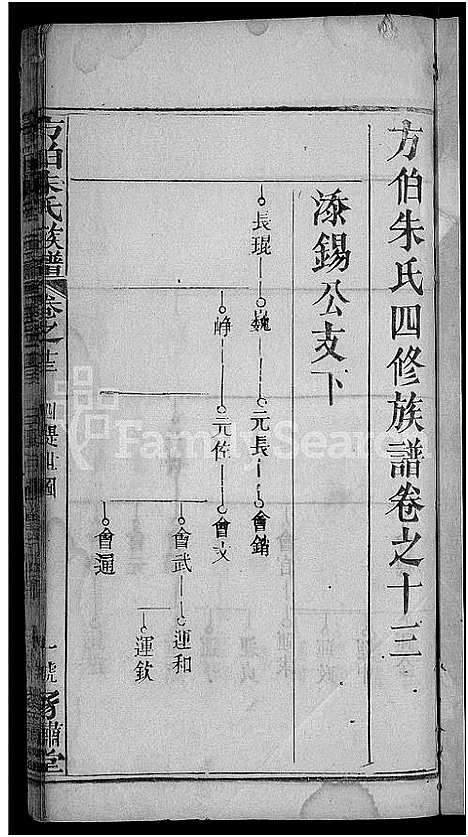 方伯朱氏四修族譜卷之十三
添錫公支下
長琨 巍 元長 會鎖
崢 元佐 會文
會武 運和
運欽
會通
方伯朱氏族譜 卷之十三
一號
堂
FamilySearch